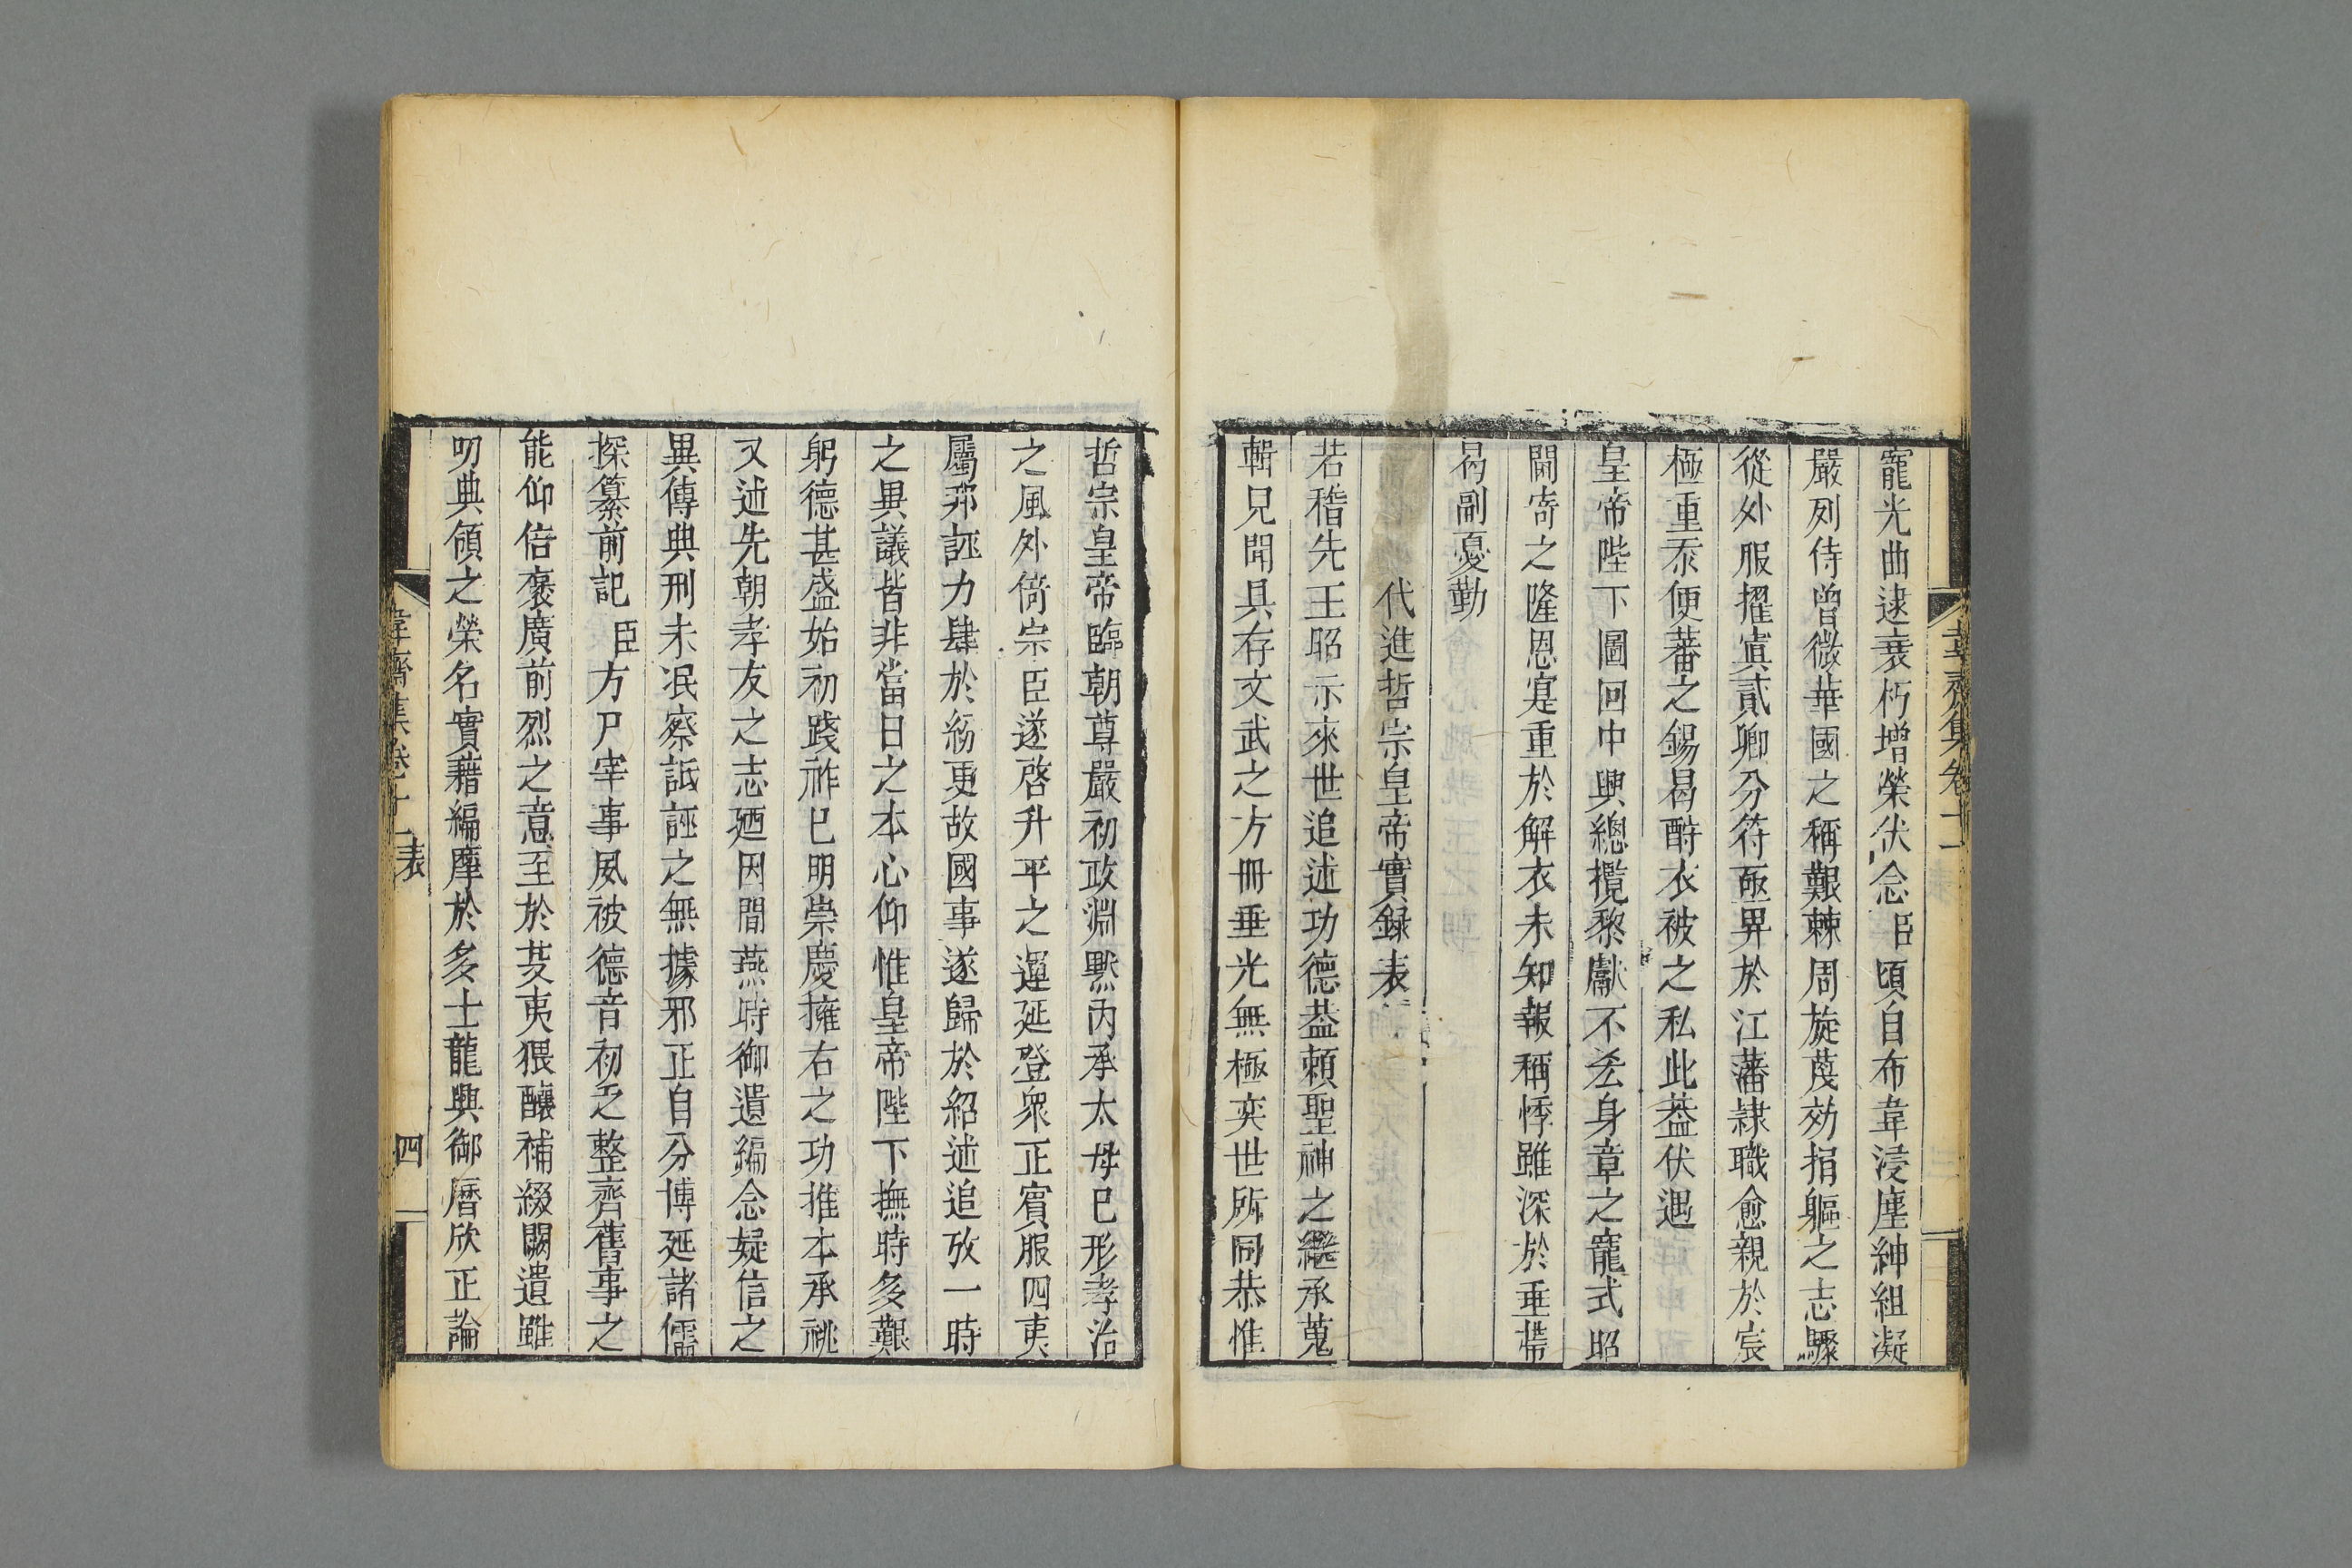 韋齋集卷十一
寵光曲逮衰朽增榮伏念臣頃自布韋浸塵紳組凝
嚴列侍曾微華國之稱艱棘周旋蔑効捐軀之志驟
從外服擢寘貳卿分符亟畀於江藩隷職愈親於宸
極重忝便蕃之錫曷酧衣被之私此葢伏遇
皇帝陛下圖回中興總攬黎獻不㤀身章之寵式昭
閫寄之隆恩寔重於解衣未知報稱悸雖深於垂帶
曷副憂勤
代進哲宗皇帝實録表
若稽先王昭示來世追述功德葢頼聖神之繼承蒐
輯見聞具存文武之方冊垂光無極奕世所同恭惟
哲宗皇帝臨朝尊嚴初政淵黙内承太母已形孝治
之風外倚宗臣遂啓升平之運延登衆正賓服四夷
屬邪誣力肆於紛更故國事遂歸於紹述追攷一時
之異議皆非當日之本心仰惟皇帝陛下撫時多艱
躬德甚盛始初踐祚已明崇慶擁右之功推本承祧
又述先朝孝友之志廼因間燕時御遺編念疑信之
異傳典刑未泯察詆誣之無據邪正自分博延諸儒
探纂前記臣方尸宰事夙被德音初乏整齊舊事之
能仰俉褒廣前烈之意至於芟夷猥釀補綴闕遺雖
叨典領之榮名實藉編摩於多士龍輿御曆欣正論
韋齋集卷十一 表 四